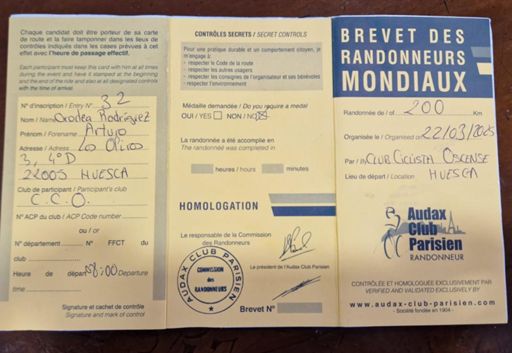 Chaque candidat doit être porteur de sa carte
de route et la faire tamponner dans les lieux de
contrôles indiqués dans les cases prévues à cet
effet avec l'heure de passage effectif.
Each participant must keep this card with him at all times
during the event and have it stamped at the beginning
and the end of the ride and also at all designated controls
with the time of arrival
N° d'inscription / Entry N° 32
Nom / Name Rodríguez
Prénom / Forename Arturo
Adresse / Address
3, 4°D
22005 HUESCA
Club de participant / Participant's club
C.C.O.
N° ACP du club / ACP Code number
ou / or
N° département N° FFCT du
club
Heure de départ 8:00 Departure
time
Signature et cachet de contrôle
Signature and mark of control
CONTRÔLES SECRETS / SECRET CONTROLS
Pour une pratique durable et un comportement citoyen, je
m'engage à :
- respecter le Code de la route
- respecter les autres usagers
- respecter les consignes de l'organisateur et ses bénévoles
- respecter l'environnement
Médaille demandée / Do you require a medal
OUI / YES NON / NO
La randonnée a été accomplie en
The randonnée was completed in
heures / hours minutes
HOMOLOGATION
Le responsable de la Commission
des Randonneurs
Le président de l'Audax Club Parisien
AUDAX CLUB PARISIEN
COMMISSION
des
RANDONNEURS
Brevet N°
BREVET DES
RANDONNEURS
MONDIAUX
Randonnée de / of 200 Km
Organisée le / Organised on 22/03/2025
Par / By CLUB CICLISTA OSCENSE
Lieu de départ / Location HUESCA
Audax
Club
Parisien
RANDONNEUR
CONTRÔLÉE ET HOMOLOGUÉE EXCLUSIVEMENT PAR
VERIFIED AND VALIDATED EXCLUSIVELY BY
www.audax-club-parisien.com
- Société fondée en 1904 -